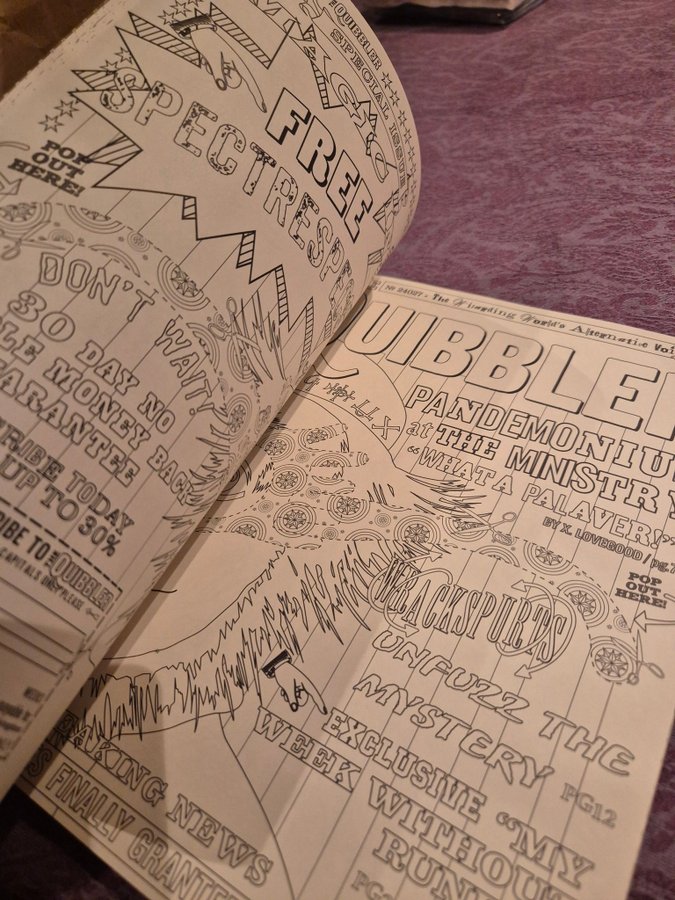 THE QUIBBLER
SPECIAL ISSUE
FREE
SPECTRESP
POP
OUT
HERE!
DON'T
WAIT!
30 DAY NO
LE MONEY BACK
ARANTEE
RIBE TODAY
UP TO 30%
RIBE TO THE QUIBBLER
CAPITALS ONLY PLEASE
№ 24027 - The Wizarding World's Alternative Voi
UIBBLER
PANDEMONIU
at THE MINISTRY
"WHAT A PALAVER!"
BY X. LOVEGOOD / pg.7
POP
OUT
HERE!
WRACKSPURTS
UNFUZZ THE
MYSTERY PG12
EXCLUSIVE "MY
WEEK WITHOUT
RUN
PG
EAKING NEWS
S FINALLY GRANTE